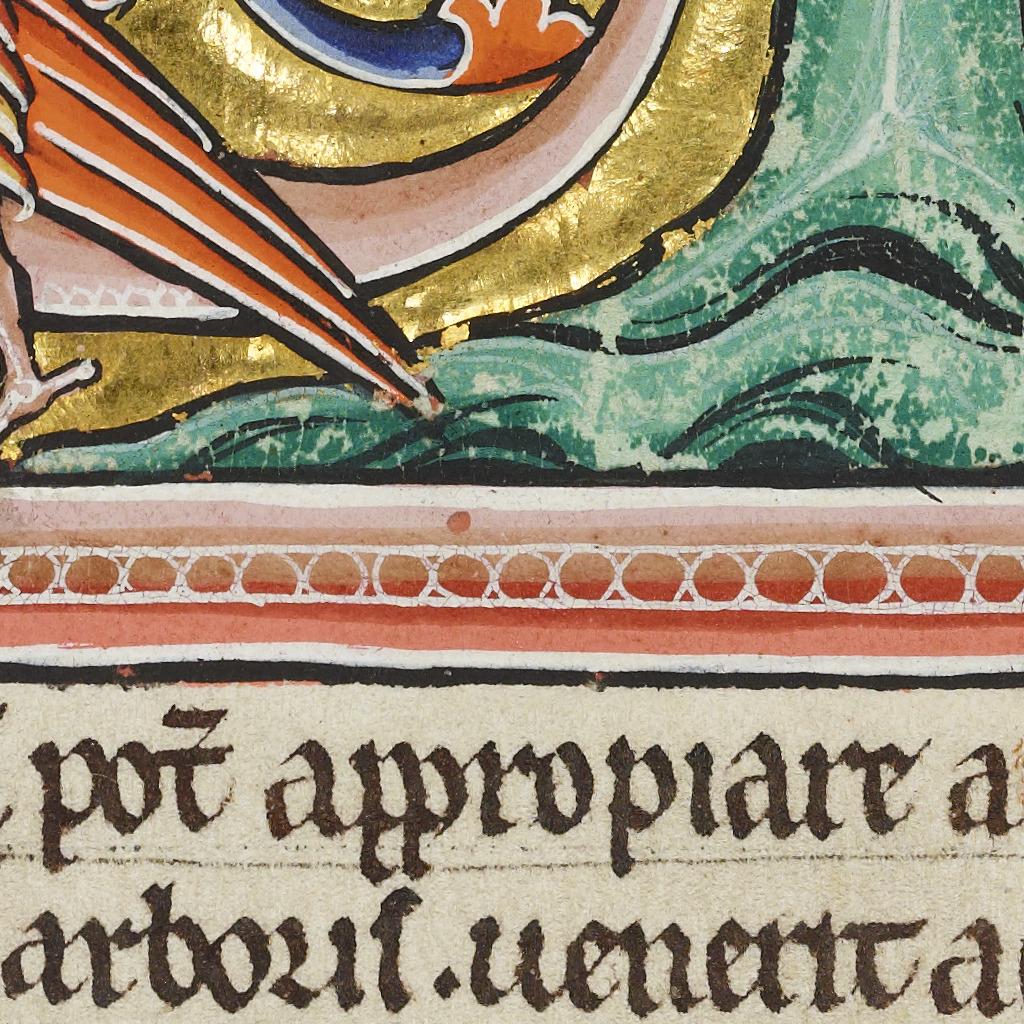 pot̄ appropiare a
arboris .uenerit a